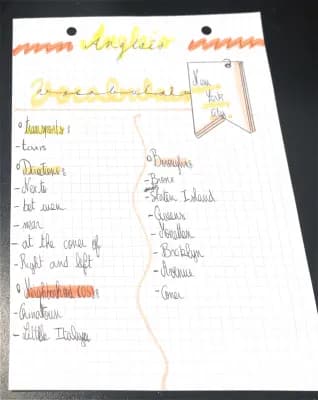 Anglais
Vocabulaire
New
York
transports :
- tours
Directions :
- Next to
- bet ween
- near
- at the coner of
- Right and left
- Chinatown
- Little Italy
Boroughs :
- Bronx
- Staten Island
- Queens
- Brooklyn
- Avenue
- Coner